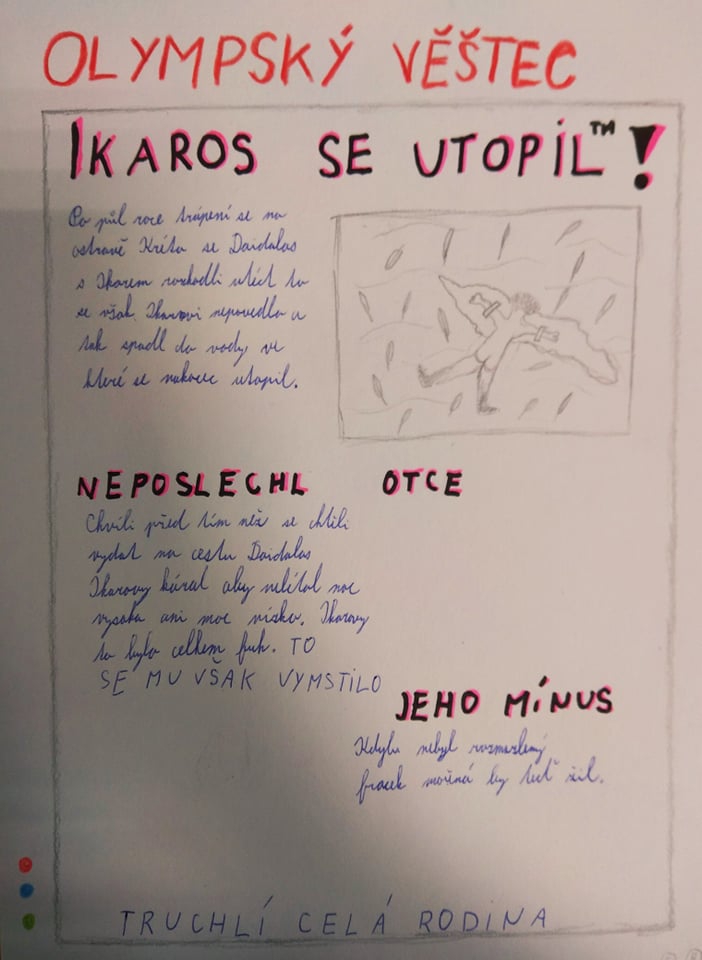 OLYMPSKÝ VĚŠTEC
IKAROS SE UTOPIL™!
Po půl roce trápení se na
ostravě Kréta se Daidalos
s Ikarem rozhodli utéct to
se však Ikarovi nepovedlo a
tak spadl do vody, ve
které se nakonec utopil.
NEPOSLECHL OTCE
Chvíli před tím než se chtěli
vydat na cestu Daidalos
Ikarovy kázal aby nelítal moc
vysoko ani moc nízko. Ikarovy
to bylo celkem fuk. TO
SE MU VŠAK VYMSTILO
JEHO MÍNUS
Kdyby nebyl rozmazlený
fracek možná by teď žil.
TRUCHLÍ CELÁ RODINA